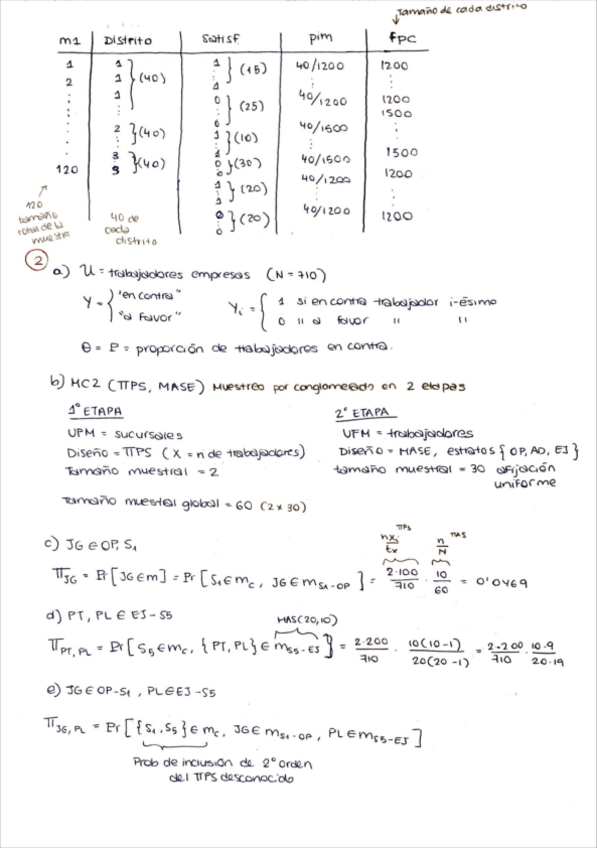 Tamaño de cada distrito
m1 | Distrito | Satisf. | pim | fpc
1 1 1 40/1200 1200
2 1 } (40) } (15)
1 0 40/1200 1200
0 } (25) 1500
2 } (40) 1 } (10) 40/1500
3 } (40) 0 } (30) 40/1500 1500
120 1 40/1200 1200
1 } (20)
0 } (20) 40/1200 1200
120 tamaño total de la muestra
40 de cada distrito
2
a) U = trabajadores empresas (N = 710)
Y = { "en contra" "a favor" Yi = { 1 si en contra trabajador i-ésimo
0 " a favor " "
θ = P = proporción de trabajadores en contra.
b) MC2 (ΠPS, MASE) Muestreo por conglomerado en 2 etapas
1ª ETAPA 2ª ETAPA
UPM = sucursales UFM = trabajadores
Diseño = ΠPS (X = n de trabajadores) Diseño = MASE, estratos { OP, AD, EJ }
Tamaño muestral = 2 tamaño muestral = 30 afijación uniforme
Tamaño muestral global = 60 (2 x 30)
c) JG ∈ OP, S1
ΠPS nxi/tx MAS n/N
Π_JG = Pr[JG ∈ m] = Pr[S1 ∈ mc, JG ∈ m_S1-OP] = 2·100/710 · 10/60 = 0'0469
d) PT, PL ∈ EJ - S5
MAS(20,10)
Π_PT,PL = Pr[S5 ∈ mc, {PT, PL} ∈ m_S5-EJ] = 2·200/710 · 10(10-1)/20(20-1) = 2·200/710 · 10·9/20·19
e) JG ∈ OP-S1, PL ∈ EJ-S5
Π_JG,PL = Pr[{S1, S5} ∈ mc, JG ∈ m_S1-OP, PL ∈ m_S5-EJ]
Prob de inclusión de 2º orden
del ΠPS desconocido